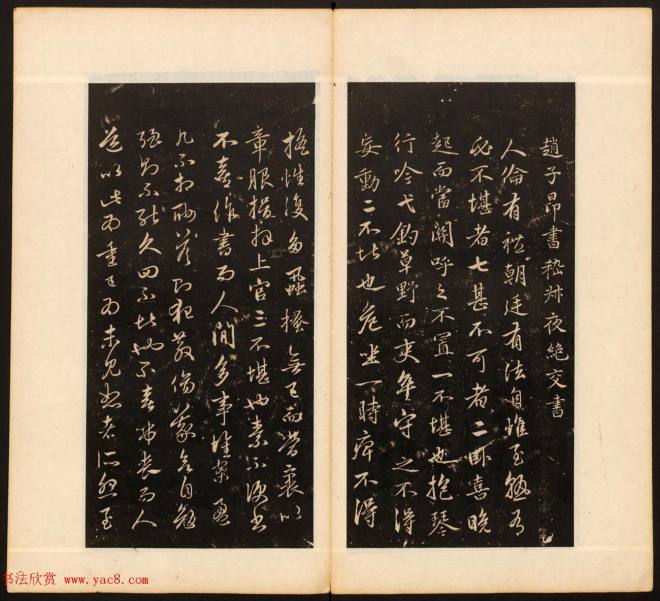 趙子昂書嵇叔夜絶交書
人倫有禮朝廷有法自惟至熟有
必不堪者七甚不可者二卧喜晚
起而當關呼之不置一不堪也抱琴
行吟弋釣草野而吏卒守之不得
妄動二不堪也危坐一時痺不得
搖性復多蝨搔無已而當裹以
章服揖拜上官三不堪也素不便書
不喜作書而人間多事堆案盈
几不相酬答則犯教傷義欲自勉
強則不能久四不堪也不喜弔喪而人
道以此為重已為未見恕者所怨至
书法欣赏 www.yac8.com